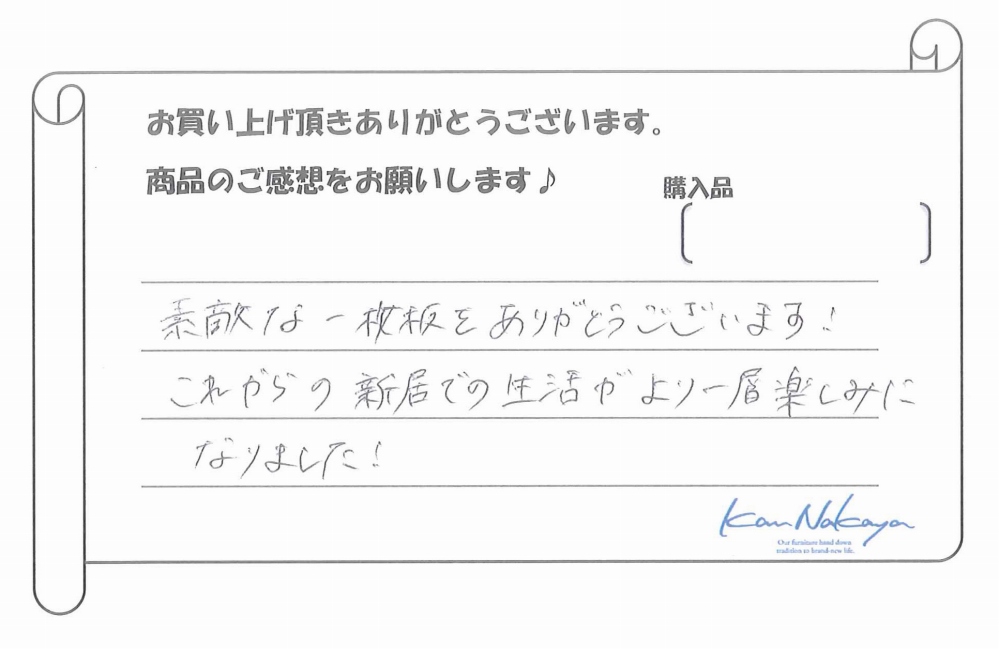 お買い上げ頂きありがとうございます。
商品のご感想をお願いします♪
購入品
素敵な一枚板をありがどうございます!
これからの新居での生活がより一層楽しみに
なりました!
Kan Nakaya
Our furniture hand down
tradition to brand-new life.